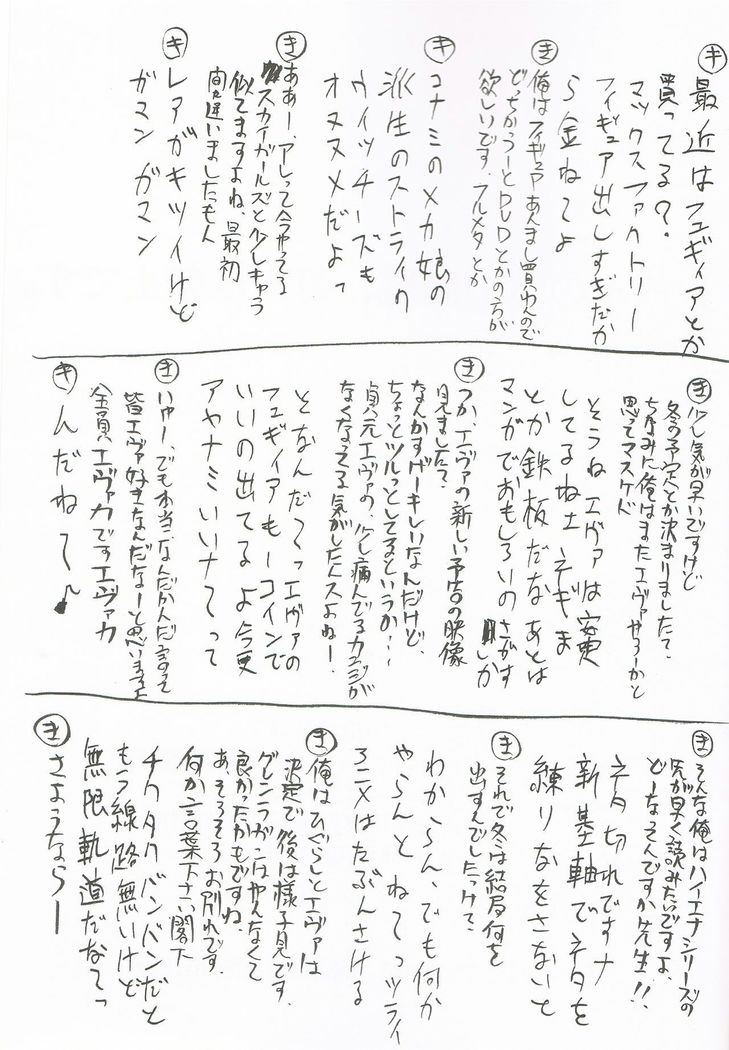 キ
最近はフュギィアとか
買ってる?
マックスファクトリー
フィギュア出しすぎだか
ら金ねてよ
き
俺はフィギュアあんまし買わんので
どっちかつーとDVDとかの方が
欲しいです、フルメタとか
キ
コナミのメカ娘の
派生のストライク
ウィッチーズも
オススメだよっ
き
ああー、アレって今やってる
スカイガールズと少しちがう
似てますよね、最初
間違いましたもん
キ
レアがキツイけど
ガマン ガマン
き
少し気が早いですけど
冬の予定とか決まりましたて?
ちなみに俺はまたエヴァやろーかと
思ってマスケド
そうね エヴァは安
してるねエ ネギま
とか鉄板だな あとは
マンガでおもしろいの さがす
しか
き
つか、エヴァの新しい予告の映像
見ましたて?
なんかすげーキレイなんだけど、
ちょっとツルっとしてるというか…
貞元エヴァの、少し病んでるカンジが
なくなってる気がしたんスよねー!
そなんだてっエヴァの
フュギィアも一コインで
いいの出てるよ今更
アヤナミいいナてって
き
いやー、でも本当、なんだかんだ言って
皆エヴァ好きなんだなーと思いますよ
全員エヴァカですエヴァカ
キ
んだねて♪
き
そんな俺はハイエナシリーズの
先が早く読みたいですよ、
どーなってんですか先生!!
ネタ切れですナ
新基軸でネタを
練りなをさないと
き
それで冬は結局何を
出すんでしたっけて?
わからん、でも何か
やらんとねてっツライ
ろニメはたぶんさける
き
俺はひぐらしとエヴァは
決定で後は様子見です、
グレンラガンはやんなくて
良かったかもですね
あ、そろそろお別れです、
何か言葉下さい閣下
チクタクバンバンだと
もう線路無いけど
無限軌道だなてっ
き
さようならー